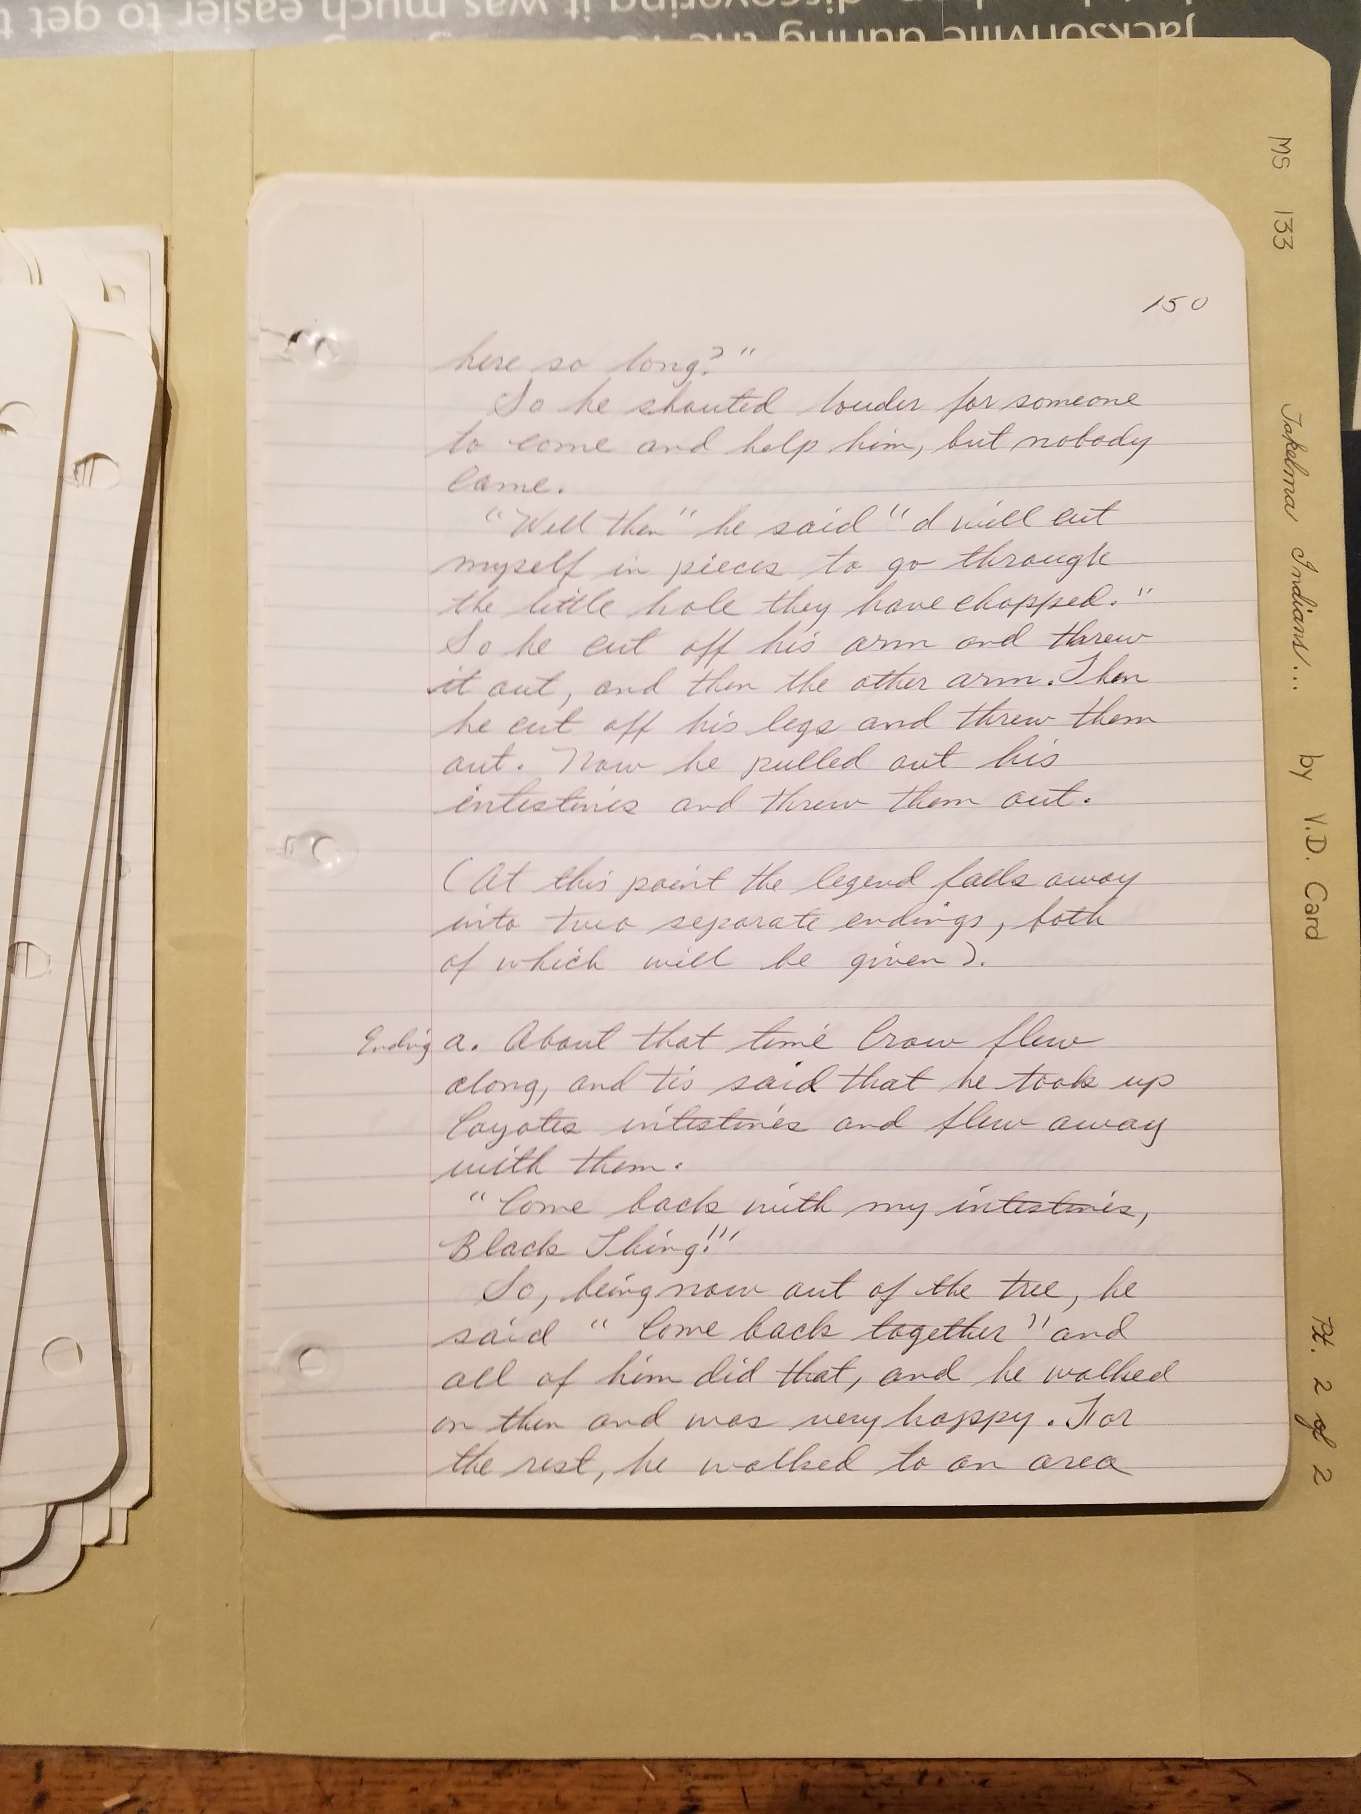 Jacksonville during the
discovering it was much easier to get t
MS 133 Takelma Indians... by V.D. Card Pt. 2 of 2
150
here so long?"
So he shouted louder for someone
to come and help him, but nobody
came.
"Well then" he said "I will cut
myself in pieces to go through
the little hole they have chopped."
So he cut off his arm and threw
it out, and then the other arm. Then
he cut off his legs and threw them
out. Now he pulled out his
intestines and threw them out.
(At this point the legend falls away
into two separate endings, both
of which will be given).
Ending a. About that time Crow flew
along, and tis said that he took up
Coyotes intestines and flew away
with them.
"Come back with my intestines,
Black Thing!"
So, being now out of the tree, he
said "Come back together" and
all of him did that, and he walked
on then and was very happy. For
the rest, he walked to an area